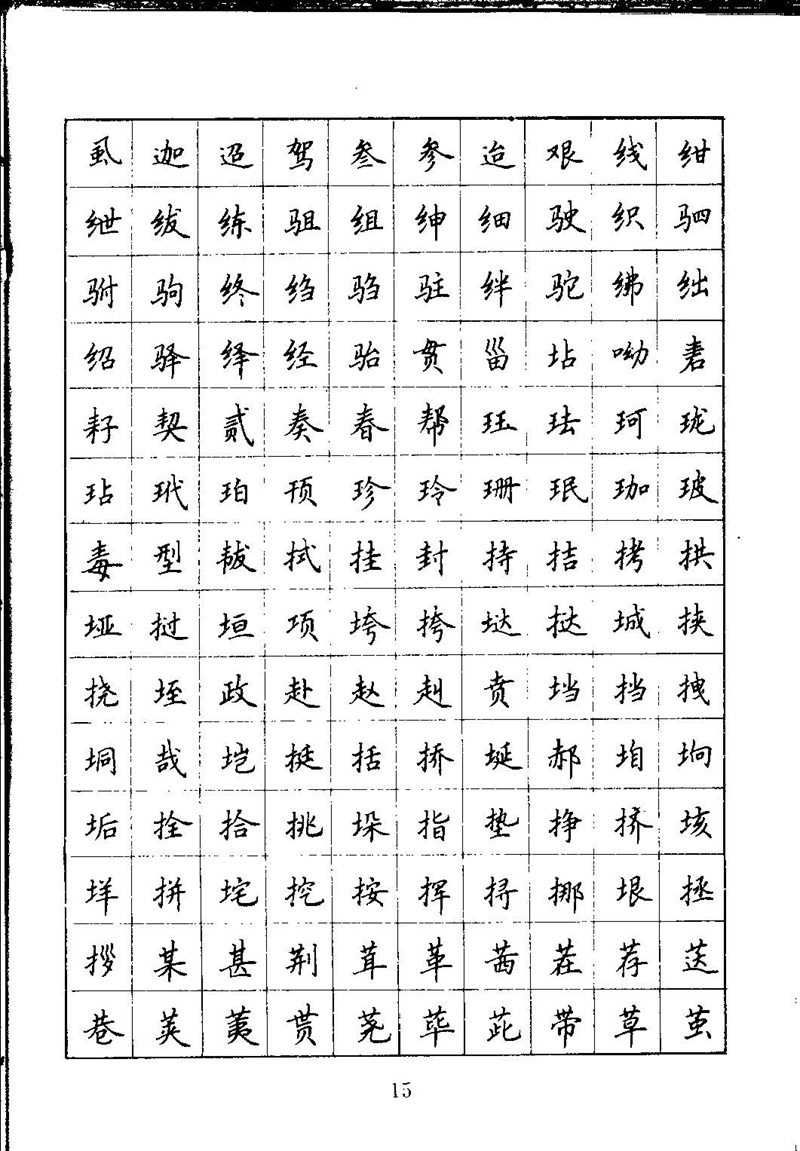 虱迦迢驾叁参迨艰线绀
绁绂练驵组绅细驶织驷
驸驹终绉驺驻绊驼绋绌
绍驿绎经骀贯甾坫呦砉
耔契贰奏春帮珏珐珂珑
玷玳珀顸珍玲珊珉珈玻
毒型韨拭挂封持拮拷拱
垭挝垣项垮挎垯挞城挟
挠垤政赴赵赳贲垱挡拽
垌哉垲挺括挢埏郝垍垧
垢拴拾挑垛指垫挣挤垓
垟拼垞挖按挥挦挪垠拯
拶某甚荆茸革茜茬荐荙
巷荚荑贳荛荜茈带草茧
15